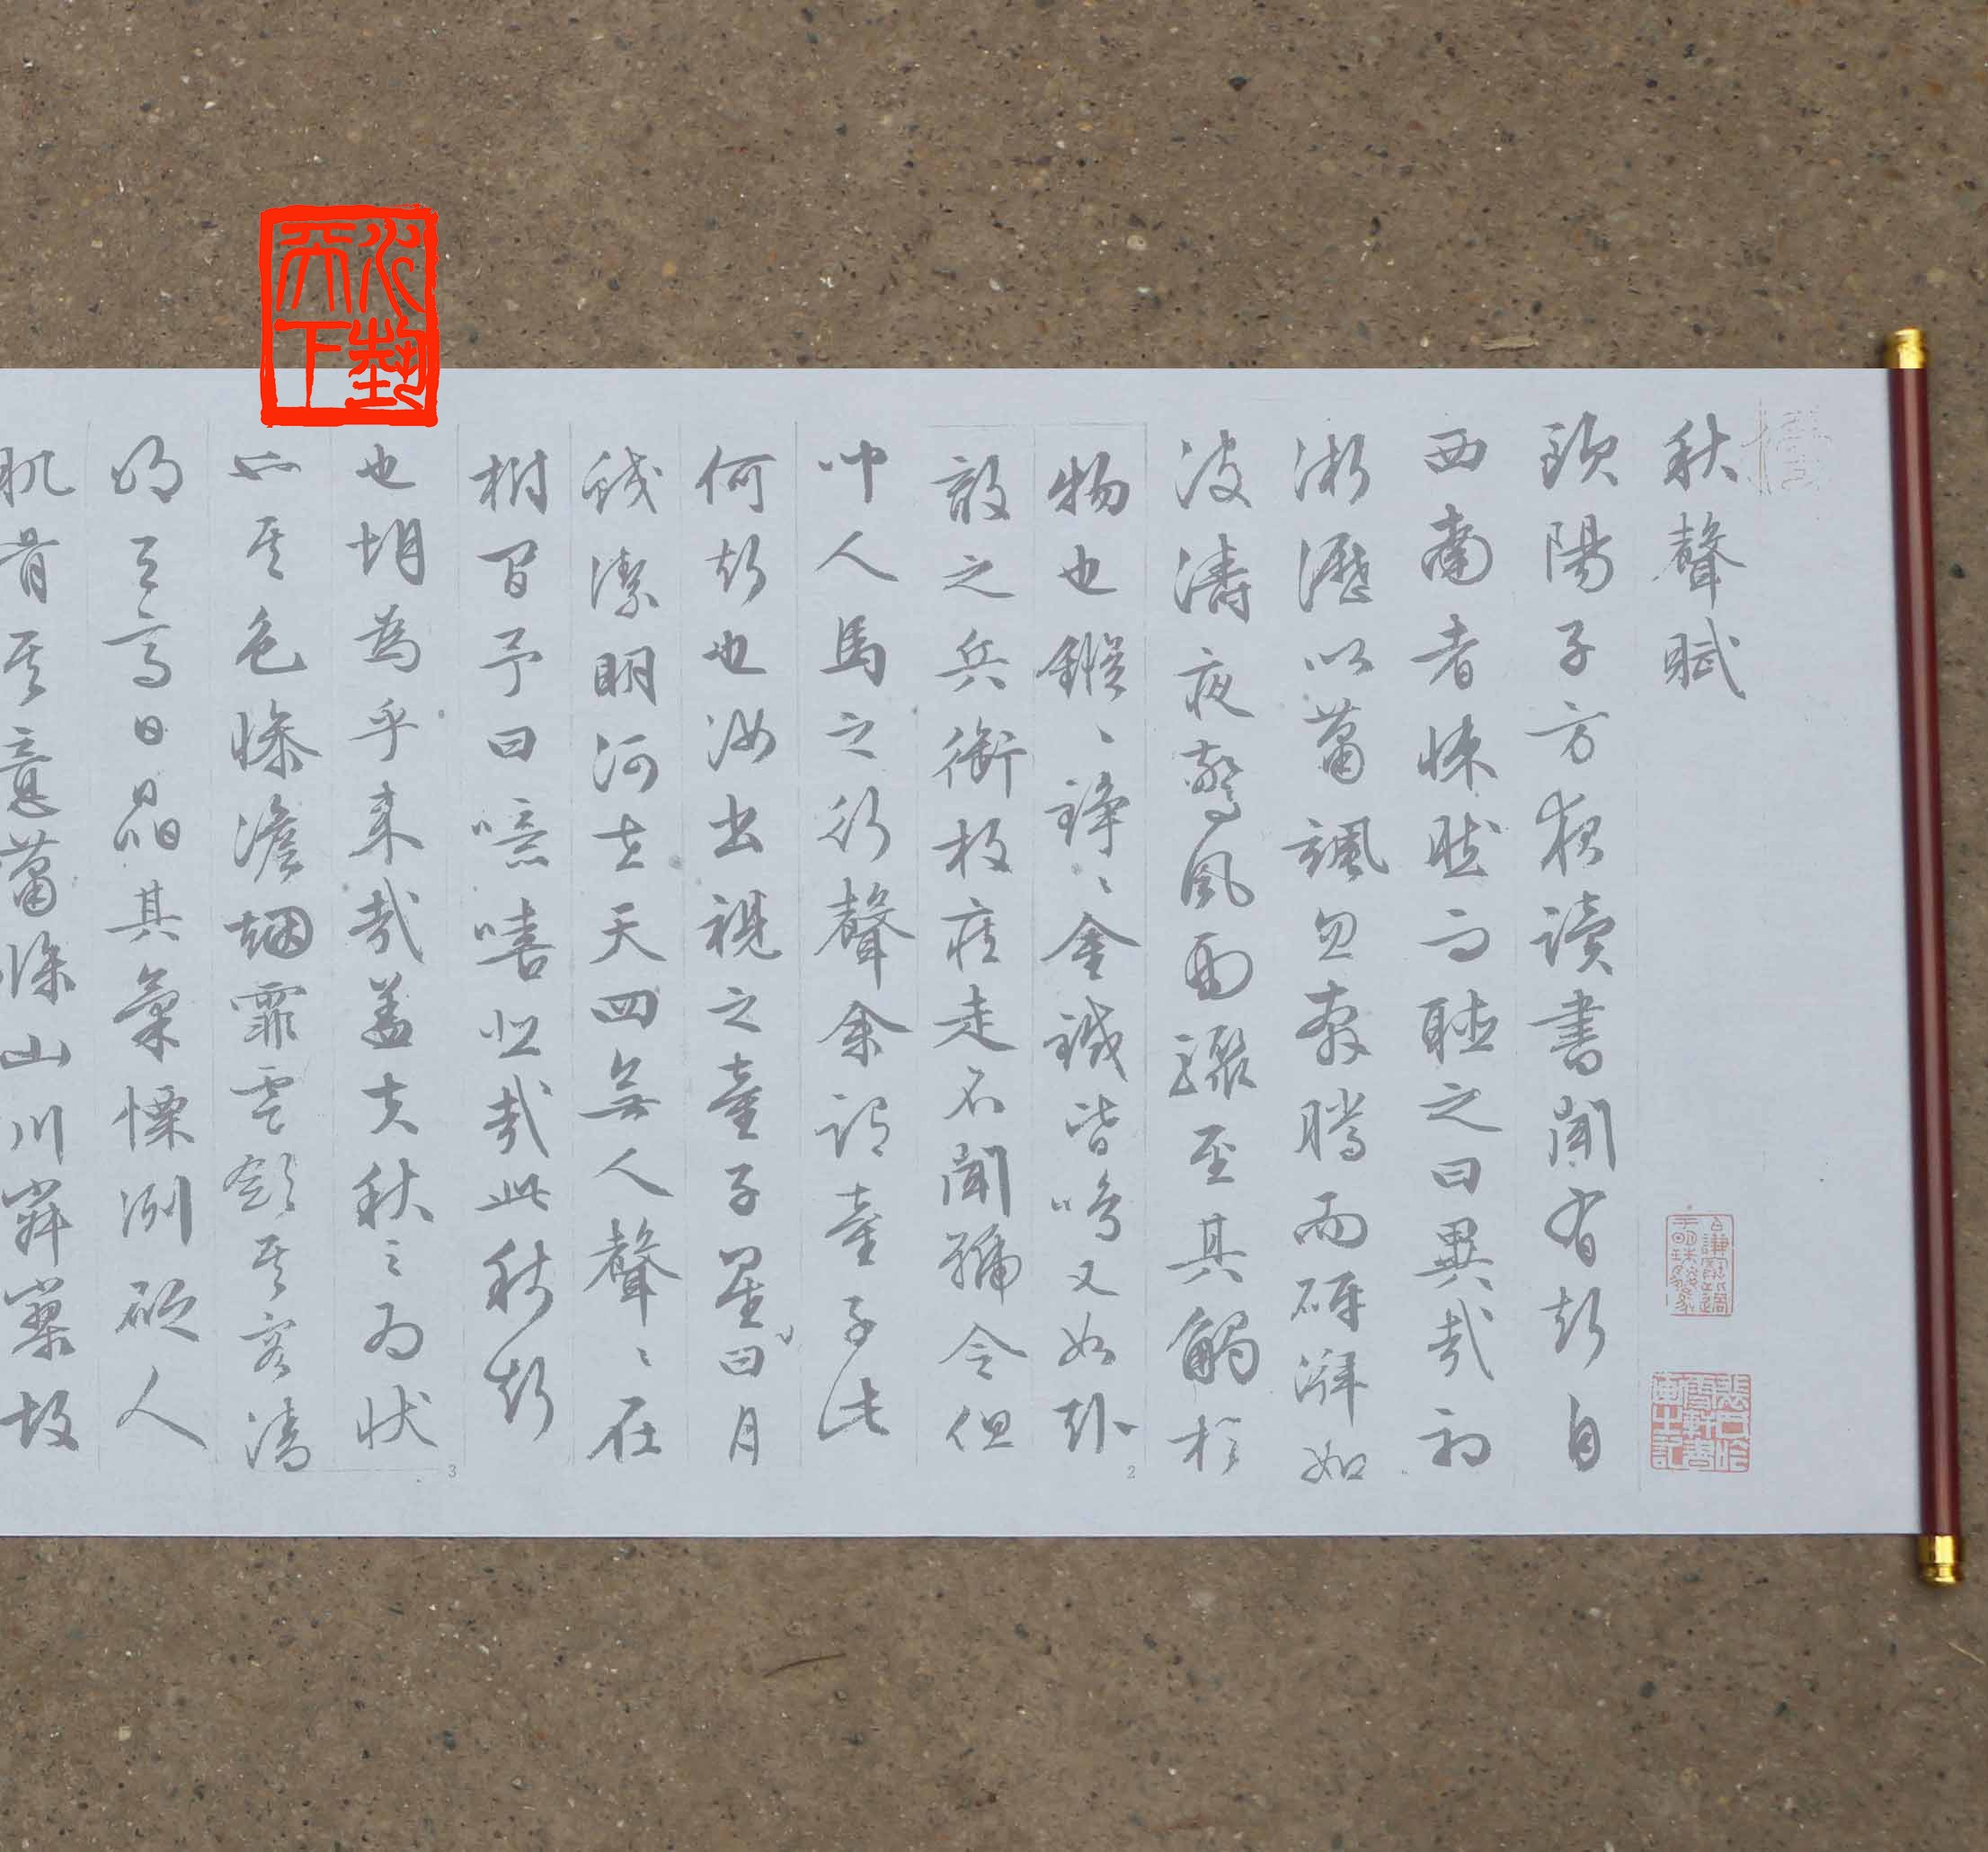 秋聲賦
歐陽子方夜讀書聞有聲自
西南者悚然而聽之曰異哉初
淅瀝以蕭颯忽奔騰而砰湃如
波濤夜驚風雨驟至其觸於
物也鏦〻錚〻金鐵皆鳴又如赴
2
敵之兵銜枚疾走不聞號令但
聞人馬之行聲余謂童子此
何聲也汝出視之童子星曰月
皎潔明河在天四無人聲〻在
樹間予曰噫嘻悲哉此秋聲
3
也胡為乎來哉蓋夫秋之為狀
也其色慘澹烟霏雲斂其容清
明天高日晶其氣慄冽砭人
肌骨其意蕭條山川寂寥故
天下